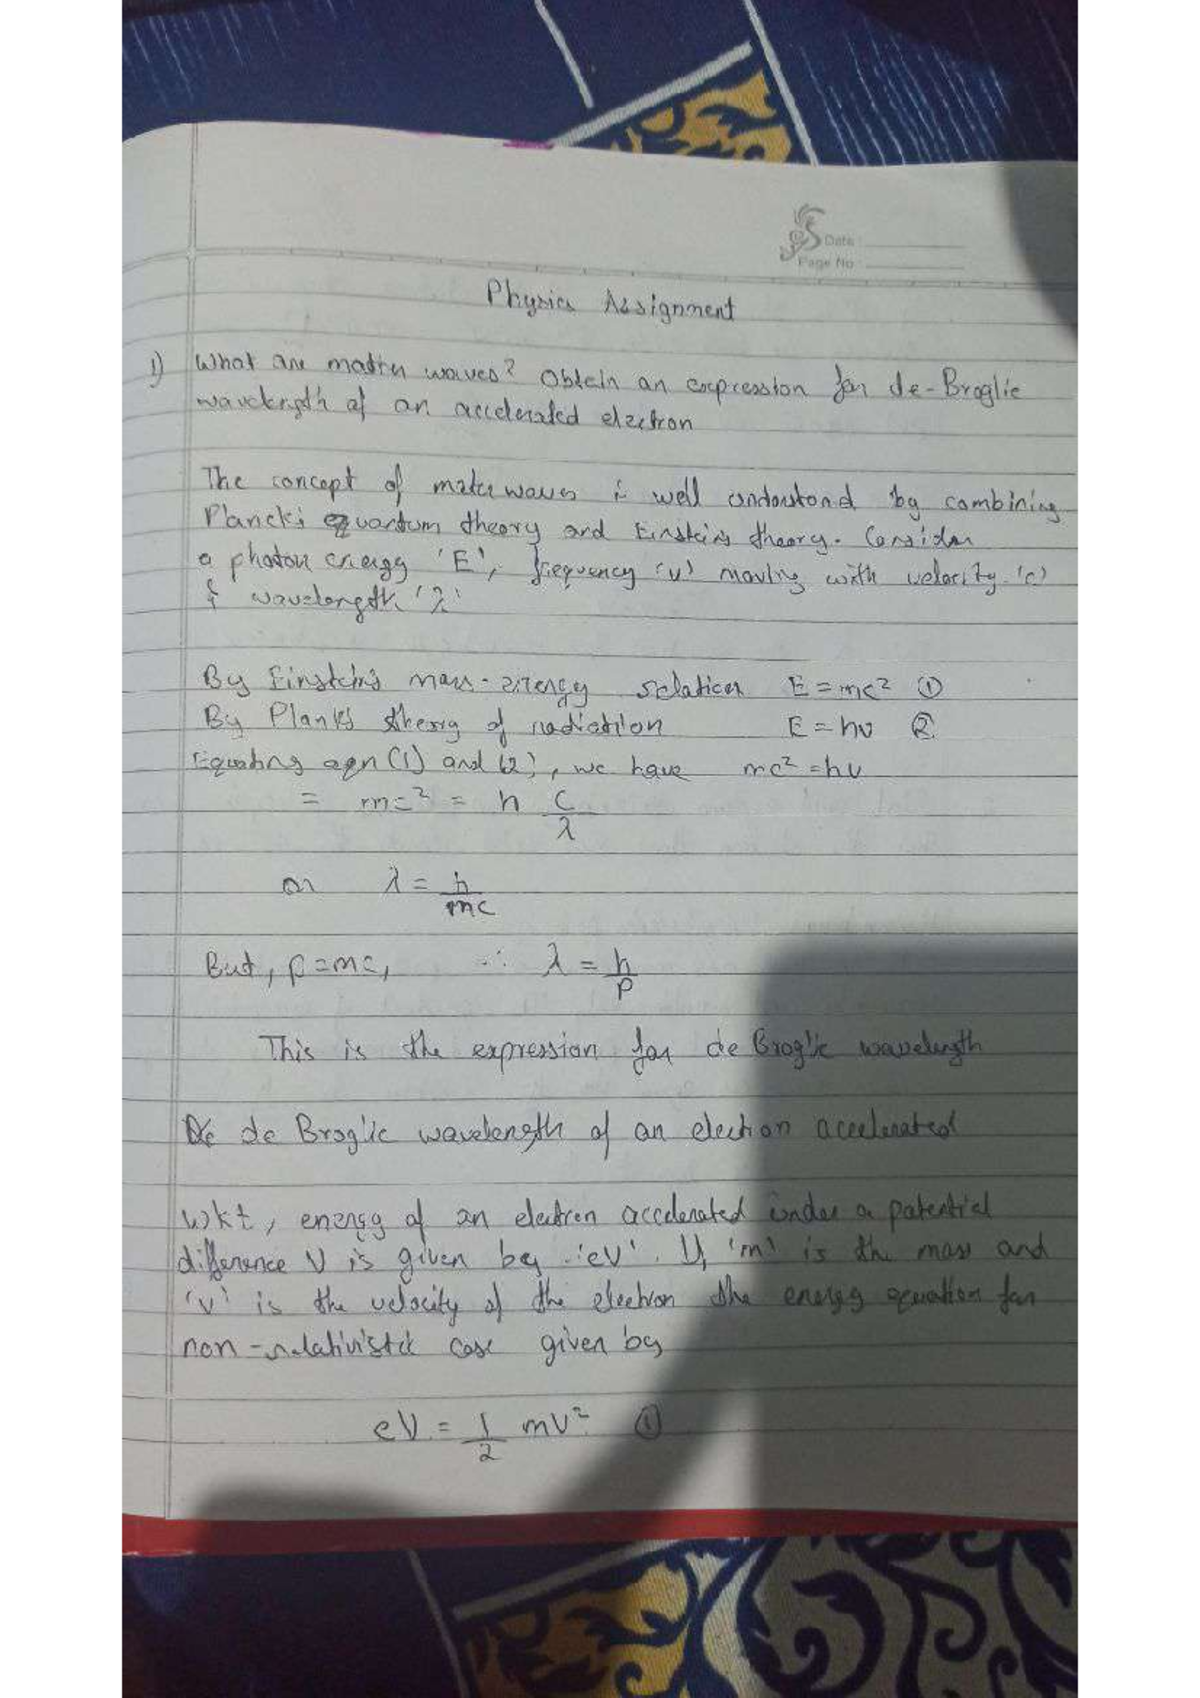 Date :
Page No :
Physics Assignment
1) What are matter waves? Obtain an expression for de-Broglie
wavelength of an accelerated electron
The concept of matter waves is well understood by combining
Planck's quantum theory and Einstein's theory. Consider
a photon energy 'E', frequency 'ν' moving with velocity 'c'
& wavelength 'λ'
By Einstein's mass-energy relation E = mc² ①
By Plank's theory of radiation E = hν ②
Equating eqn (1) and (2), we have mc² = hν
= mc² = h c/λ
or λ = h/mc
But, p = mc, ∴ λ = h/p
This is the expression for de Broglie wavelength
de Broglie wavelength of an electron accelerated
wkt, energy of an electron accelerated under a potential
difference V is given by 'eV'. If 'm' is the mass and
'v' is the velocity of the electron the energy equation for
non-relativistic case given by
eV = 1/2 mv² ①